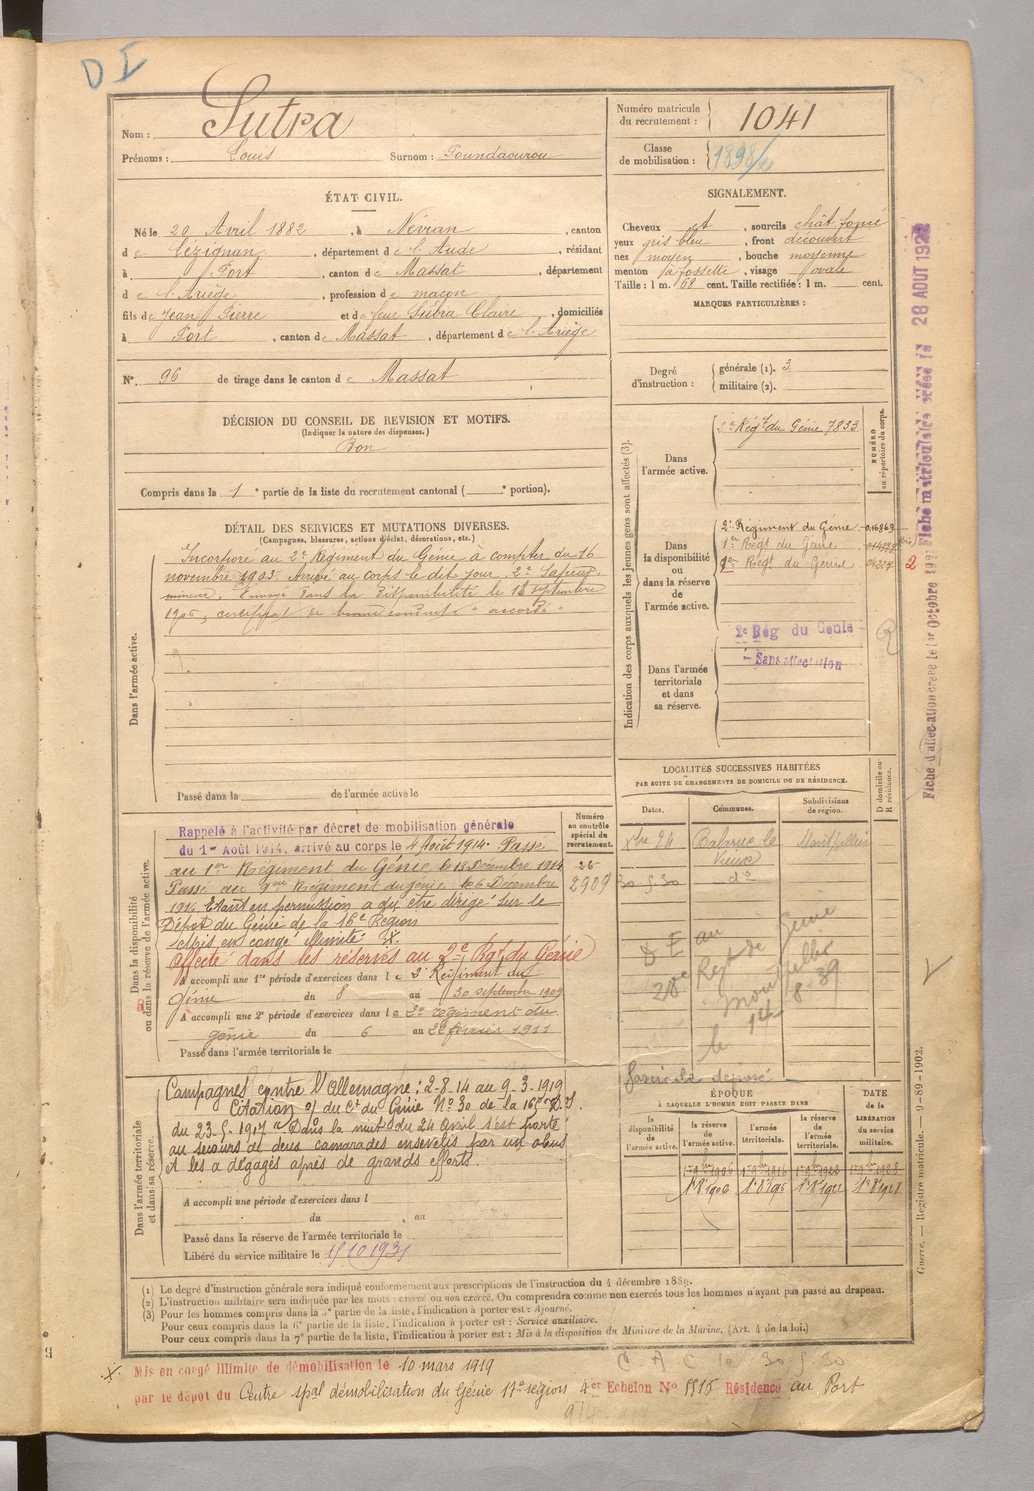 D I
Nom : Sutra
Prénoms : Louis Surnom : Toundaourou
Numéro matricule du recrutement : 1041
Classe de mobilisation : 1898/2
ÉTAT CIVIL.
Né le 20 Avril 1882, à Névian, canton
d e Lézignan, département d e l'Aude, résidant
à Port, canton d e Massat, département
d e l'Ariège, profession d e maçon
fils d e Jean Pierre et d e feue Subra Claire, domiciliés
à Port, canton d e Massat, département d e l'Ariège
N° 96 de tirage dans le canton d e Massat
SIGNALEMENT.
Cheveux et, sourcils chât foncé
yeux gris bleu, front découvert
nez moyen, bouche moyenne
menton à fossette, visage ovale
Taille : 1 m. 68 cent. Taille rectifiée : 1 m. cent.
MARQUES PARTICULIÈRES :
Degré d'instruction :
générale (1). 3
militaire (2).
DÉCISION DU CONSEIL DE REVISION ET MOTIFS.
(Indiquer la nature des dispenses.)
Bon
Compris dans la 1e partie de la liste du recrutement cantonal ( e portion).
DÉTAIL DES SERVICES ET MUTATIONS DIVERSES.
(Campagnes, blessures, actions d'éclat, décorations, etc.)
Dans l'armée active.
Incorporé au 2e Régiment du Génie à compter du 16
novembre 1903. Arrivé au corps le dit jour, 2e Sapeur
mineur. Envoyé dans la disponibilité le 18 septembre
1906, certificat de bonne conduite "accordé"
Passé dans la de l'armée active le
Indication des corps auxquels les jeunes gens sont affectés (3).
NUMÉRO au répertoire du corps.
Dans l'armée active.
2e Régt du Génie 7833
Dans la disponibilité ou dans la réserve de l'armée active.
2e Régiment du Génie
1er Régt du Génie
9e Régt du Génie
2
Dans l'armée territoriale et dans sa réserve.
2e Rég du Genie
Sans affectation
Fiche matriculaire créée le 28 AOUT 1922
Fiche d'affectation créée le 1er Octobre
LOCALITÉS SUCCESSIVES HABITÉES
PAR SUITE DE CHANGEMENTS DE DOMICILE OU DE RÉSIDENCE.
Dates. Communes. Subdivisions de région. D domicile ou R résidence.
Xbre 24 Balaruc le Vieux Montpellier
30 5 30 do
D E au Génie
28e Regt de
Montpellier
le 14 8 39
Dans la disponibilité ou dans la réserve de l'armée active.
Numéro au contrôle spécial du recrutement.
26
2909
Rappelé à l'activité par décret de mobilisation générale
du 1er Août 1914, arrivé au corps le 4 Août 1914. Passé
au 1er Régiment du Génie le 13 Décembre 1914
Passé au 9eme Régiment du génie le 6 Décembre
1916. Etant en permission a du être dirigé sur le
Dépôt du Génie de la 16e Région
Mis en congé illimité X.
Affecté dans les réserves au 2e Rgt du Génie
A accompli une 1re période d'exercices dans l e 2e Régiment du
Génie du 8 au 30 septembre 1909
A accompli une 2e période d'exercices dans l e 2e régiment du
génie du 6 au 22 février 1911
Passé dans l'armée territoriale le
Dans l'armée territoriale et dans sa réserve.
Campagnes contre l'Allemagne : 2-8-14 au 9-3-1919
Citation o/ du Ct du Génie No 30 de la 16e D.I.
du 23-5-1917 "Dans la nuit du 24 Avril s'est porté
au secours de deux camarades ensevelis par un obus
et les a dégagés après de grands efforts.
A accompli une période d'exercices dans l
du au
Passé dans la réserve de l'armée territoriale le
Libéré du service militaire le 15 10 1931
ÉPOQUE
À LAQUELLE L'HOMME DOIT PASSER DANS
la disponibilité de l'armée active.
la réserve de l'armée active.
l'armée territoriale.
la réserve de l'armée territoriale.
DATE de la LIBÉRATION du service militaire.
1er 9bre 1906 1er 9bre 1916 1er 9bre 1922 1er 9bre 1928
1er 8 1906 1er 8 1916 1er 8 1922 1er 8 1928
Guerre. — Registre matricule. — 9-89-1902.
(1) Le degré d'instruction générale sera indiqué conformément aux prescriptions de l'instruction du 4 décembre 1889.
(2) L'instruction militaire sera indiquée par les mots : exercé ou non exercé. On comprendra comme non exercés tous les hommes n'ayant pas passé au drapeau.
(3) Pour les hommes compris dans la 5e partie de la liste, l'indication à porter est : Ajourné.
Pour ceux compris dans la 6e partie de la liste, l'indication à porter est : Service auxiliaire.
Pour ceux compris dans la 7e partie de la liste, l'indication à porter est : Mis à la disposition du Ministre de la Marine. (Art. 4 de la loi.)
C. A C le 30 5 30
X. Mis en congé illimité de démobilisation le 10 mars 1919
par le dépôt du Centre spal démobilisation du Génie 17e région 4er Echelon No 5515 Résidence au Port